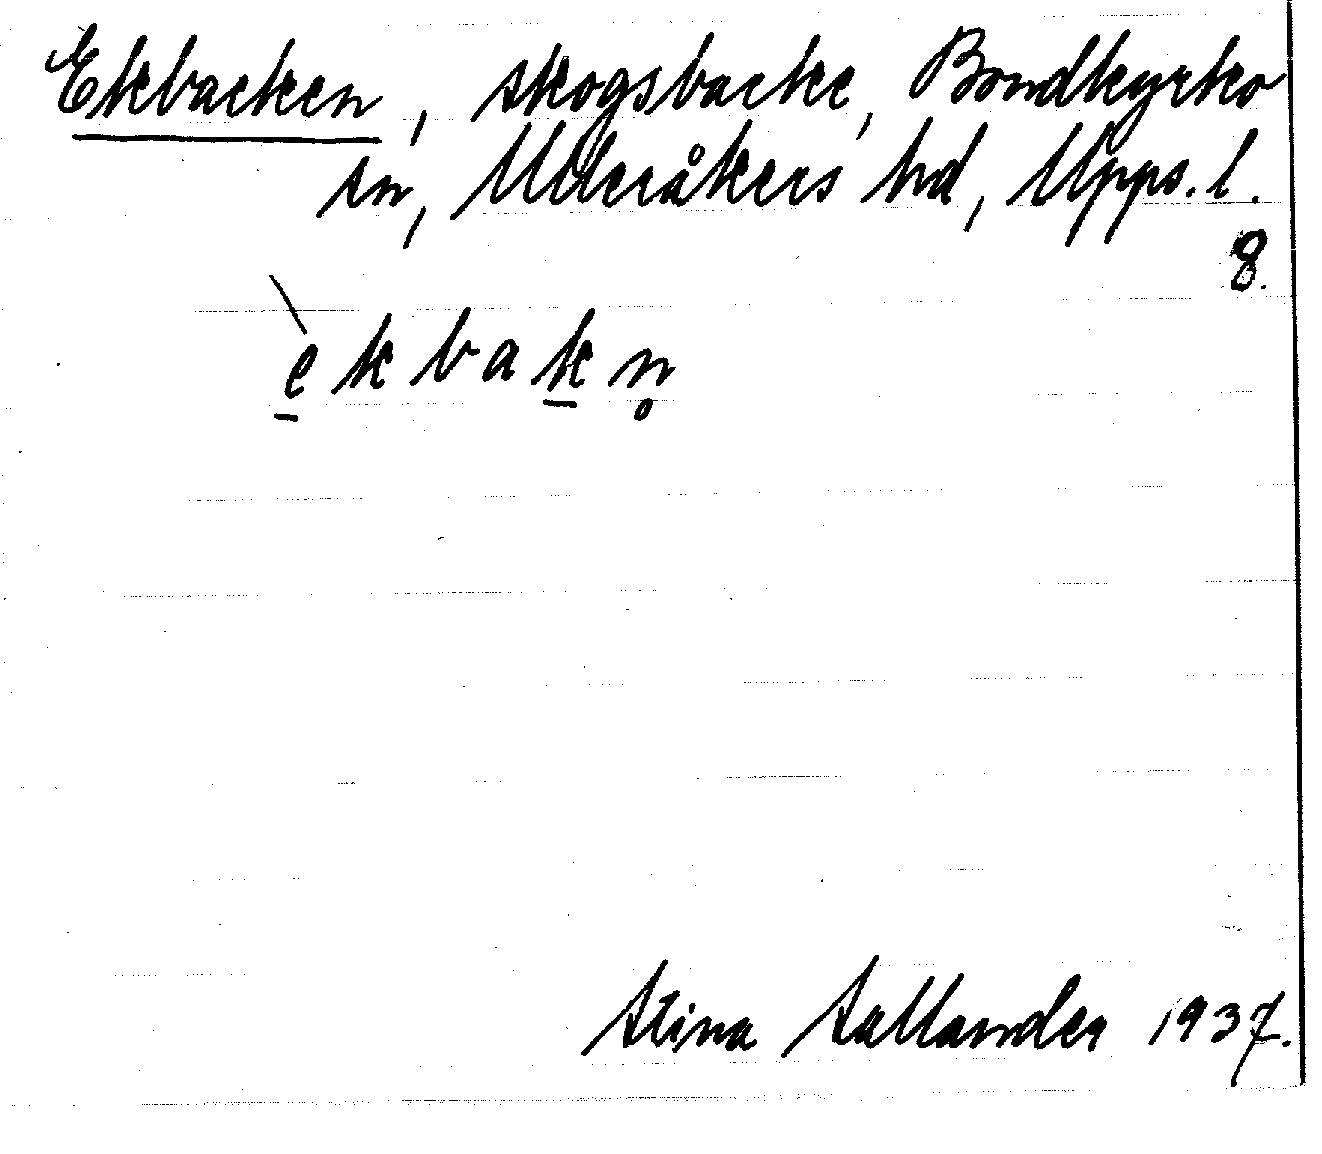 Ekbacken, skogsbacke, Bondkyrko
sn, Ulleråkers hd, Upps. l.
8.
̀e̲kbak̲n̥
Stina Sallander 1937.